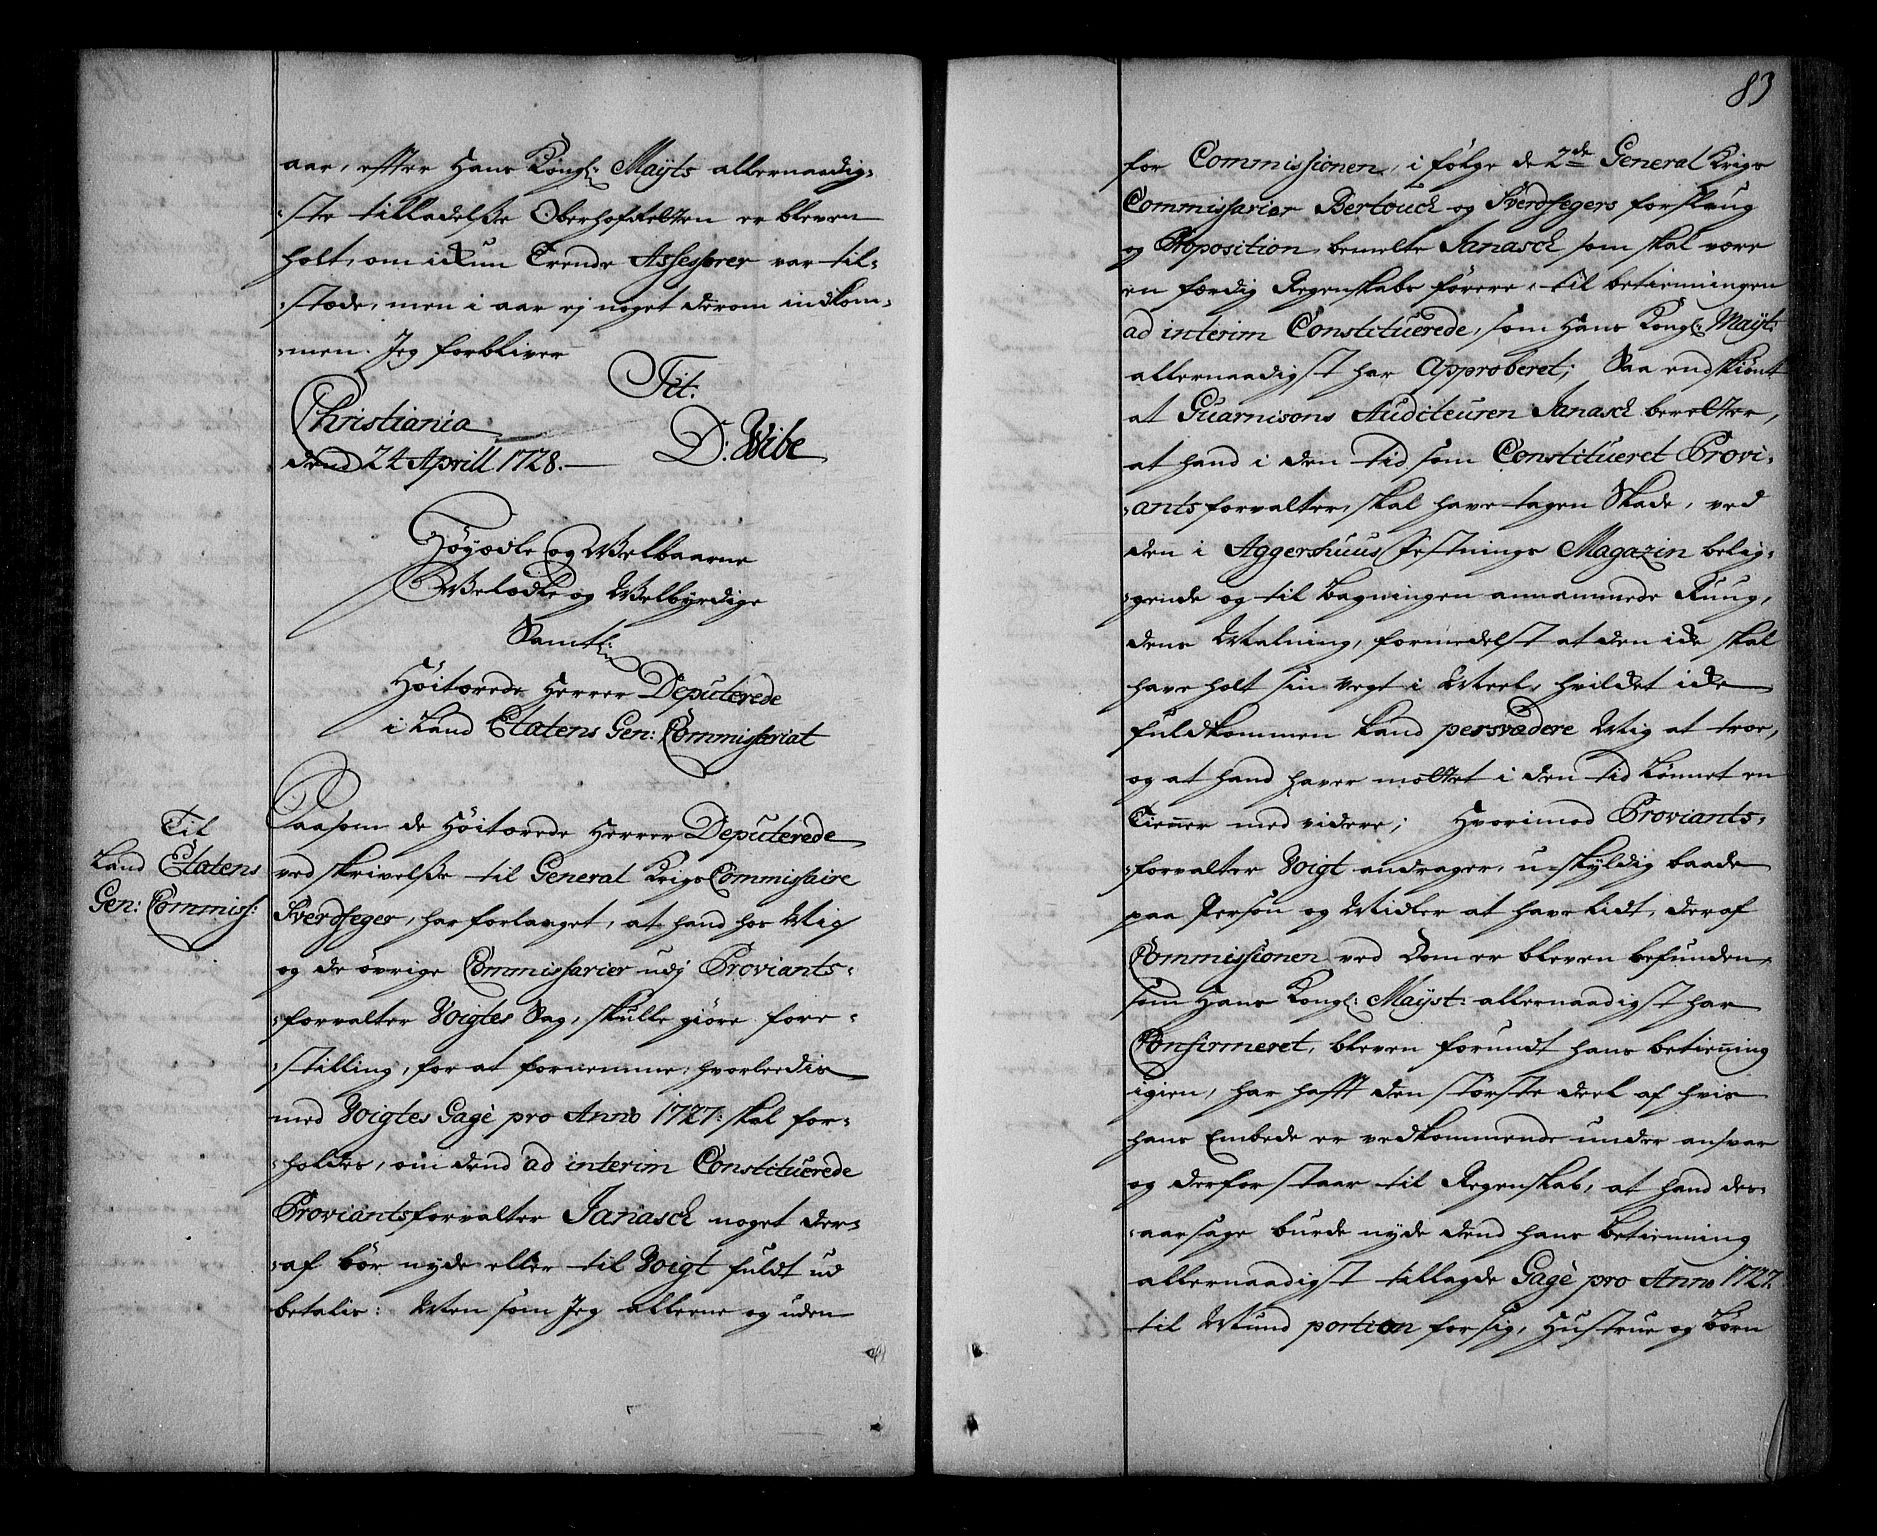 aar, effter Hans Kongl: Mayts allernaadig-
-ste tilladelße Oberhofrætten er bleven
holt, om ickun Trende Assessorer var til-
-stæde, men i aar ej noget derom indkom-
-men. Jeg forbliver
Tit.
Christiania
dend 24 Aprill 1728.
D: Wibe
Höyædle og Welbaarne
Welædle og Welbyrdige
Samtl:
Höitærede Herrer Deputerede
i Land Etatens Gen: Commissariat
Til
Land Etatens
Gen: Commiss:
Saasom de Höitærede Herrer Deputerede
ved skrivelße til General Krigs Commissaire
Sverdfeger, har forlanget, at hand hos Mig
og de övrige Commissarier udj Proviants-
-forvalter Voigtes Sag, skulle giöre fore-
-stilling, for at fornemme, hvorleedis
med Voigtes Gagè pro Anno 1727: skal for-
-holdes, om dend ad interim Constituerede
Proviantsforvalter Janasch noget der-
-af bör nyde eller til Voigt fuldt ud
betalis: Men som Jeg allerne og uden
83
for Commissionen, i fölge de 2de General Krigs
Commissarier Bertouch og Sverdfegers forslaug
og Proposition, bemelte Janasch som skal være
en færdig Regenskabs förere, til betienningen
ad interim Constituerede, som Hans Kongl: Mayt:
allernaadigst har Approberet; Saa endskiönt
at Guarnisons Auditeuren Janasch beretter,
at hand i den tid som Constitueret Provi-
-antsforvalter, skal have tagen Skade, ved
den i Aggershuus Festnings Magazin belig-
-gende og til bagningen annammede Ruug,
dens Malning, formedelst at den icke skal
have holt sin vegt i Meel, hvildet icke
fuldkommen kand persvadere Mig at troe,
og at hand haver mottet i den tid Lönnet en
Tienner med videre; Hvorimod Proviants-
-forvalter Voigt andrager, u-skyldig baade
paa Person og Midler at have lidt, deraf
Commissionen ved Dom er bleven befunden,
som Hans Kongl: Mayst: allernaadigst har
Confirmeret, bleven forundt hans betienning
igien, har hafft den störste deel af hvis
hans Embede er vedkommende under ansvar
og derfor staar til Regenskab, at hand des-
-aarsage burde nyde dend hans betienning
allernaadigst tillagde Gagè pro Anno 1727.
til Mund portion for sig, Hustrue og Börn